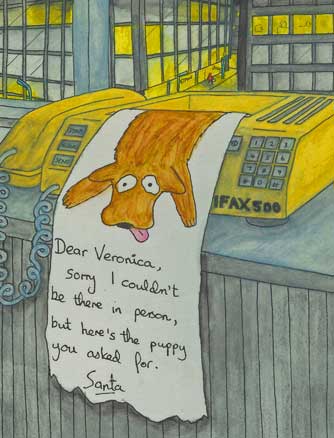 SEND
IFAX500
1 2 3
4 5 6
7 8 9
* 0 #
Dear Veronica,
sorry I couldn't
be there in person,
but here's the puppy
you asked for.
Santa